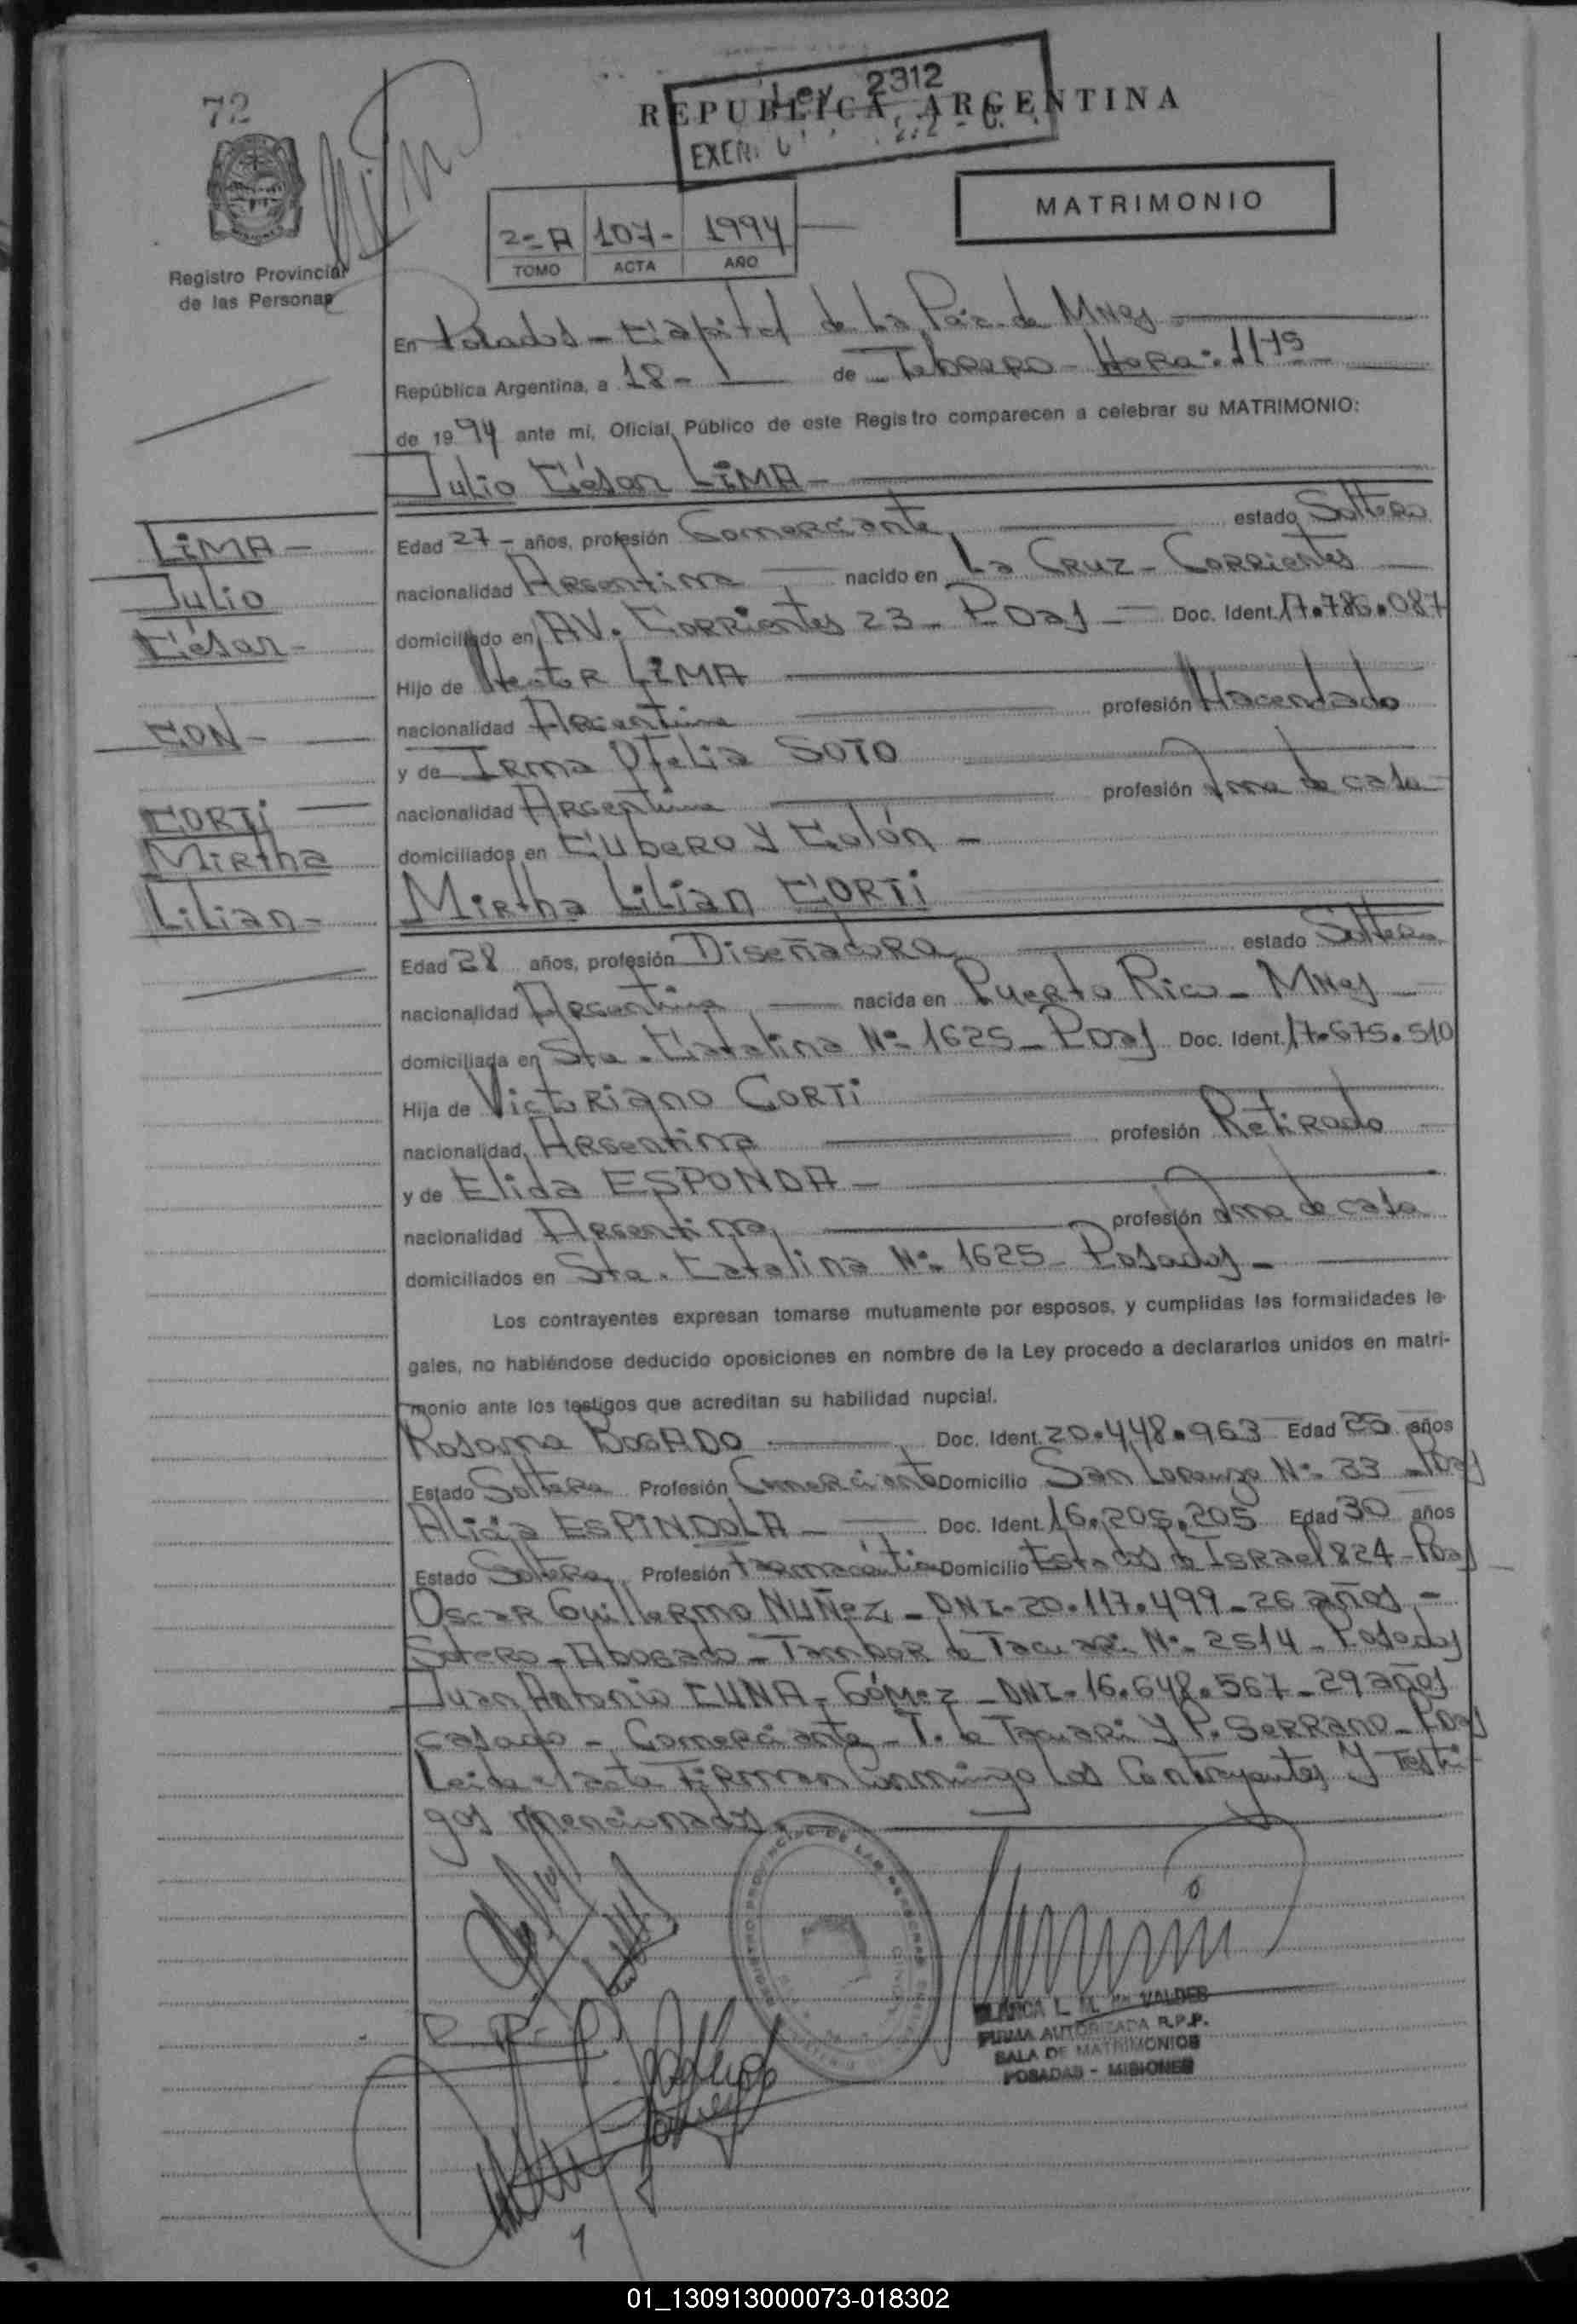 72
Ley 2312
REPUBLICA ARGENTINA
MATRIMONIO
2=A 107- 1994
TOMO ACTA AÑO
Registro Provincial
de las Personas
En Posadas - Capital de La Pcia. de Mnes
República Argentina, a 18- de Febrero - Hora: 1115
de 1994 ante mí, Oficial Público de este Registro comparecen a celebrar su MATRIMONIO:
Julio César LiMA -
Edad 27 - años, profesión Comerciante estado Soltero
nacionalidad Argentina nacido en La Cruz - Corrientes
domiciliado en AV. Corrientes 23 - PDas - Doc. Ident. 17.786.087
Hijo de Hector LiMA
nacionalidad Argentina profesión Hacendado
y de Irma Ofelia SOTO
nacionalidad Argentina profesión Ama de casa
domiciliados en Cubero y Colón -
Mirtha Lilian CORTi
Edad 28 años, profesión Diseñadora estado Soltera
nacionalidad Argentina nacida en Puerto Rico - MNes
domiciliada en Sta. Catalina Nº 1625 - PDas Doc. Ident. 17.675.510
Hija de Victoriano CORTi
nacionalidad Argentina profesión Retirado
y de Elida ESPONDA -
nacionalidad Argentina profesión Ama de casa
domiciliados en Sta. Catalina Nº 1625 - Posadas -
LiMA -
Julio
César -
CON -
CORTi
Mirtha
Lilian -
Los contrayentes expresan tomarse mutuamente por esposos, y cumplidas las formalidades le-
gales, no habiéndose deducido oposiciones en nombre de la Ley procedo a declararlos unidos en matri-
monio ante los testigos que acreditan su habilidad nupcial.
Rosana BOGADO Doc. Ident. 20.448.963 Edad 25 años
Estado Soltera Profesión Comerciante Domicilio San Lorenzo Nº 33 - PDas
Alicia ESPINDOLA - Doc. Ident. 16.205.205 Edad 30 años
Estado Soltera Profesión Farmacéutica Domicilio Estados de Israel 824 - PDas
Oscar Guillermo NUÑez - DNI. 20.117.499 - 26 años -
Soltero - Abogado - Tambor de Tacuari Nº 2514 - Posadas
Juan Antonio CUNA - GóMez - DNI. 16.648.567 - 29 años
casado - Comerciante - T. de Tacuari y P. Serrano - PDas
Leida el acta Firman conmigo los Contrayentes y Testi
gos mencionados.
BLANCA L. VALDES
FIRMA AUTORIZADA R.P.P.
SALA DE MATRIMONIOS
POSADAS - MISIONES
01_130913000073-018302